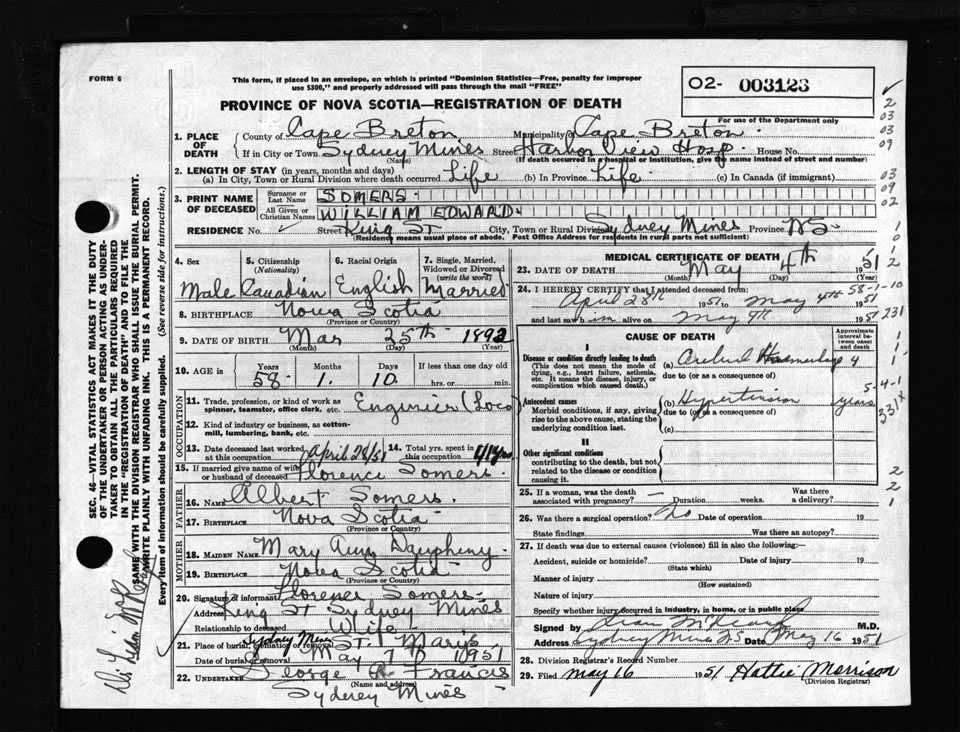 FORM 6
This form, if placed in an envelope, on which is printed "Dominion Statistics—Free, penalty for improper
use $300," and properly addressed will pass through the mail "FREE"
PROVINCE OF NOVA SCOTIA—REGISTRATION OF DEATH
O2- 003123
For use of the Department only
2
03
03
09
03
09
02
SEC. 46—VITAL STATISTICS ACT MAKES IT THE DUTY
OF THE UNDERTAKER OR PERSON ACTING AS UNDER-
TAKER TO OBTAIN ALL THE PARTICULARS REQUIRED
IN THE "REGISTRATION OF DEATH" AND TO FILE THE
SAME WITH THE DIVISION REGISTRAR WHO SHALL ISSUE THE BURIAL PERMIT.
WRITE PLAINLY WITH UNFADING INK. THIS IS A PERMANENT RECORD.
Every item of information should be carefully supplied. (See reverse side for instructions.)
1. PLACE OF DEATH
County of Cape Breton Municipality of Cape Breton
If in City or Town Sydney Mines Street Harbor View Hosp. House No.
(Name) (If death occurred in a hospital or institution, give the name instead of street and number)
2. LENGTH OF STAY (in years, months and days)
(a) In City, Town or Rural Division where death occurred Life (b) In Province Life (c) In Canada (if immigrant)
3. PRINT NAME OF DECEASED
Surname or Last Name SOMERS
All Given or Christian Names WILLIAM EDWARD
RESIDENCE No. Street King St City, Town or Rural Division Sydney Mines Province NS
(Residence means usual place of abode. Post Office Address for residents in rural parts not sufficient)
4. Sex Male
5. Citizenship (Nationality) Canadian
6. Racial Origin English
7. Single, Married, Widowed or Divorced (write the word) Married
8. BIRTHPLACE Nova Scotia
(Province or Country)
9. DATE OF BIRTH Mar 25th 1893
(Month) (Day) (Year)
10. AGE Years 58 Months 1 Days 10 If less than one day old
hrs. or min.
OCCUPATION
11. Trade, profession, or kind of work as
spinner, teamster, office clerk, etc. Enginier (Loco)
12. Kind of industry or business, as cotton-
mill, lumbering, bank, etc.
13. Date deceased last worked at this occupation April 28/51
14. Total yrs. spent in this occupation 41 yrs
15. If married give name of wife or husband of deceased Florence Somers
FATHER
16. NAME Albert Somers
17. BIRTHPLACE Nova Scotia
(Province or Country)
MOTHER
18. MAIDEN NAME Mary Ann Dauphiny
19. BIRTHPLACE Nova Scotia
(Province or Country)
20. Signature of informant Florence Somers
Address King St Sydney Mines
Relationship to deceased Wife
21. Place of burial, cremation or removal Sydney Mines St. Mary's
Date of burial or removal May 7th 1951
22. UNDERTAKER George R Francis
(Name and address)
Sydney Mines
MEDICAL CERTIFICATE OF DEATH
23. DATE OF DEATH May 4th 1951
(Month) (Day)
24. I HEREBY CERTIFY that I attended deceased from:
April 28th 1951 to May 4th 1951
and last saw h im alive on May 4th 1951
58-1-10
231
CAUSE OF DEATH
Approximate interval between onset and death
I
Disease or condition directly leading to death
(This does not mean the mode of
dying, e.g., heart failure, asthenia,
etc. It means the disease, injury, or
complication which caused death.)
(a) Cerebral Haemorrhage 4
due to (or as a consequence of)
5-4-1
Antecedent causes
Morbid conditions, if any, giving
rise to the above cause, stating the
underlying condition last.
(b) Hypertension years
due to (or as a consequence of)
(c)
331X
II
Other significant conditions
contributing to the death, but not
related to the disease or condition
causing it.
2
2
1
25. If a woman, was the death associated with pregnancy? — Duration weeks. Was there a delivery?
26. Was there a surgical operation? No Date of operation 19
State findings Was there an autopsy?
27. If death was due to external causes (violence) fill in also the following:—
Accident, suicide or homicide? Date of injury 19
(State which)
Manner of injury
(How sustained)
Nature of injury
Specify whether injury occurred in industry, in home, or in public place
Signed by M.D.
Address Sydney Mines N.S Date May 16 1951
28. Division Registrar's Record Number
29. Filed May 16 1951 Hattie Morrison
(Division Registrar)